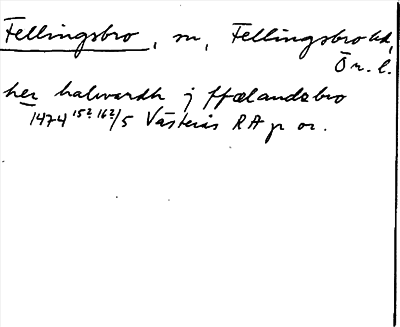 Fellingsbro, sn, Fellingsbro hd,
Ör. l.
her halwardh j ffælandzbro
1474 15? 16?/5 Västerås RA p or.